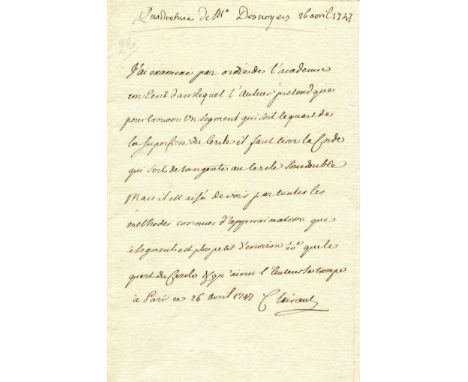 Quadrature de Mr Desnoyers 26 avril 1747
J'ai examiné par ordre de l'academie
un Ecrit dans lequel l'Auteur pretend que
pour trouver Un segment qui soit le quart de
la superficie du Cercle il faut tirer la Corde
qui sert de tangente au Cercle Sousdouble
Mais il est aisé de voir par toutes les
methodes connues d'approximation que
ce segment est plus petit d'environ que le
quart du Cercle & qu'ainsi l'Auteur se trompe
à Paris ce 26 avril 1747 Clairaut